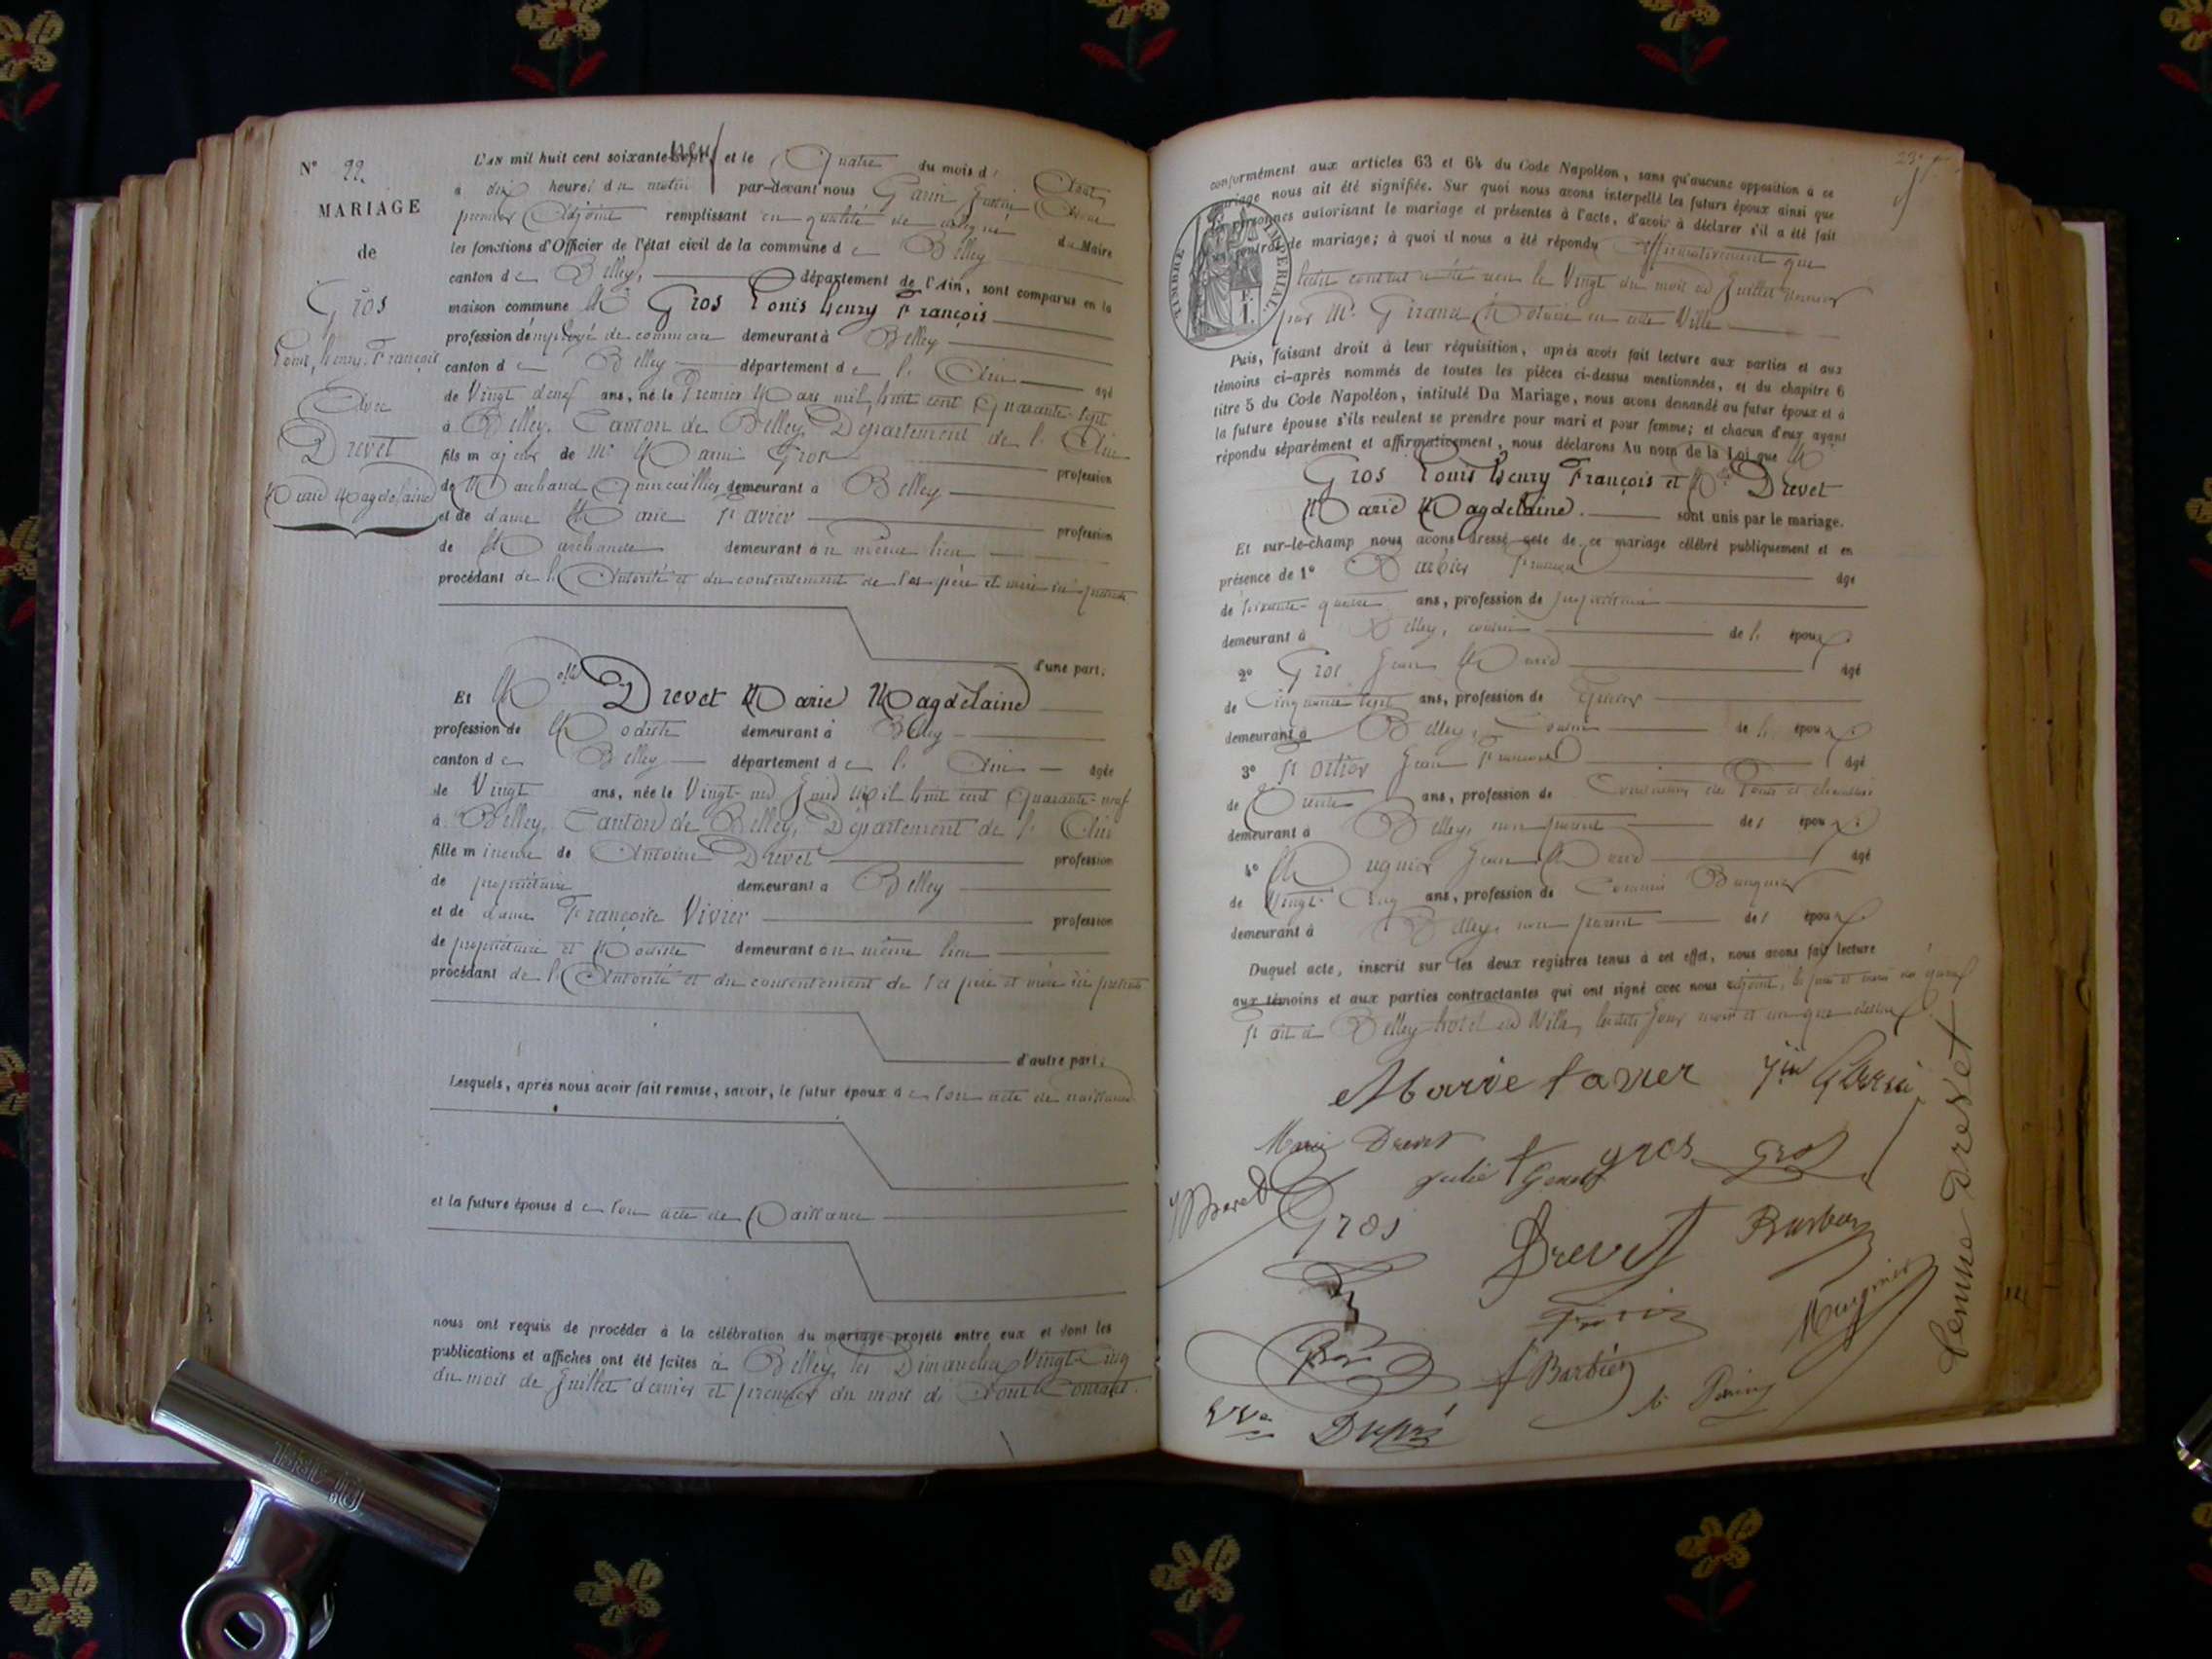 N° 22
MARIAGE
de
Gros
Louis, henry, François
Avec
Drevet
Marie Magdelaine
L'AN mil huit cent soixante-neuf et le Quatre du mois d'Août
à dix heures du matin par-devant nous Garin
premier Adjoint remplissant en qualité de délégué du Maire
les fonctions d'Officier de l'état civil de la commune de Belley
canton de Belley, département de l'Ain, sont comparus en la
maison commune Mr Gros Louis henry François
profession d'employé de commerce demeurant à Belley
canton de Belley département de l'Ain âgé
de Vingt deux ans, né le Premier Mars mil huit cent Quarante-sept
à Belley, Canton de Belley, Département de l'Ain
fils majeur de Mr Marie Gros profession
de Marchand Quincaillier demeurant à Belley
et de dame Marie Favier profession
de Marchande demeurant au même lieu
procédant de l'Autorité et du consentement de ses père et mère ici présents
d'une part;
Et Melle Drevet Marie Magdelaine
profession de Modiste demeurant à Belley
canton de Belley département de l'Ain âgée
de Vingt ans, née le Vingt-un Juin Mil huit cent Quarante-neuf
à Belley, Canton de Belley, Département de l'Ain
fille mineure de Antoine Drevet profession
de propriétaire demeurant à Belley
et de dame Françoise Vivier profession
de propriétaire et Modiste demeurant au même lieu
procédant de l'Autorité et du consentement de ses père et mère ici présents
d'autre part;
Lesquels, après nous avoir fait remise, savoir, le futur époux de son acte de naissance
et la future épouse de son acte de Naissance
nous ont requis de procéder à la célébration du mariage projeté entre eux et dont les
publications et affiches ont été faites à Belley, les Dimanches Vingt-Cinq
du mois de Juillet dernier et premier du mois de Août Courant.
conformément aux articles 63 et 64 du Code Napoléon, sans qu'aucune opposition à ce
mariage nous ait été signifiée. Sur quoi nous avons interpellé les futurs époux ainsi que
personnes autorisant le mariage et présentes à l'acte, d'avoir à déclarer s'il a été fait
contrat de mariage; à quoi il nous a été répondu affirmativement que
ledit contrat a été reçu le Vingt du mois de Juillet dernier
par Mr. Notaire en cette Ville
TIMBRE IMPERIAL
F.
1.
Puis, faisant droit à leur réquisition, après avoir fait lecture aux parties et aux
témoins ci-après nommés de toutes les pièces ci-dessus mentionnées, et du chapitre 6
titre 5 du Code Napoléon, intitulé Du Mariage, nous avons demandé au futur époux et à
la future épouse s'ils veulent se prendre pour mari et pour femme; et chacun d'eux ayant
répondu séparément et affirmativement, nous déclarons Au nom de la Loi que Mr
Gros Louis henry François et Melle Drevet
Marie Magdelaine. sont unis par le mariage.
Et sur-le-champ nous avons dressé acte de ce mariage célébré publiquement et en
présence de 1° Barbier François âgé
de soixante-quatre ans, profession de propriétaire
demeurant à Belley, cousin de l'époux;
2° Gros Jean Marie âgé
de Cinquante sept ans, profession de
demeurant à Belley, Cousin de l'époux;
3° Jean François âgé
de Trente ans, profession de Conducteur des Ponts et chaussées
demeurant à Belley, non parent des époux;
4° Mugnier Jean Marie âgé
de Vingt-Cinq ans, profession de Commis Banquier
demeurant à Belley, non parent des époux.
Duquel acte, inscrit sur les deux registres tenus à cet effet, nous avons fait lecture
aux témoins et aux parties contractantes qui ont signé avec nous adjoint,
Fait à Belley hotel de Ville, lesdits Jour mois et an que dessus
Marie favier
Marie Drevet
gros
Gros
Drevet
Gros
Drevet
Barbier
femme Drevet
Mugnier
Barbier
Vve Dupré